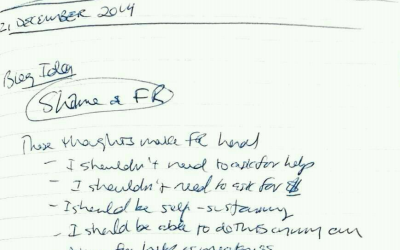 21 DECEMBER 2014
Blog Idea
Shame & FR
These thoughts make FR hard
- I shouldn't need to ask for help
- I shouldn't need to ask for $
- I should be self-sustaining
- I should be able to do this on my own